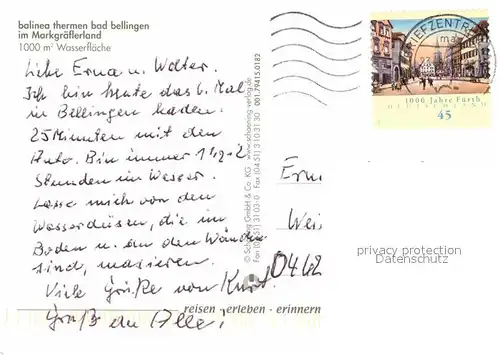 balinea thermen bad bellingen
im Markgräflerland
1000 m² Wasserfläche
Liebe Erna u. Walter.
Ich bin heute das 6. Mal
in Bellingen baden.
25 Minuten mit dem
Auto. Bin immer 1½-2
Stunden im Wasser.
Lasse mich von den
Wasserdüsen, die im
Boden u. an den Wänden
sind, masieren.
Viele Grüße von Kurt.
Gruß an Alle!
© Schöning GmbH & Co. KG · www.schoening-verlag.de
Fax (04 51) 3 10 31 30 001.79415.0182
reisen - erleben - erinnern
BRIEFZENTRUM
1000 Jahre Fürth
DEUTSCHLAND
45
Ern
Wei
0462
privacy protection
Datenschutz